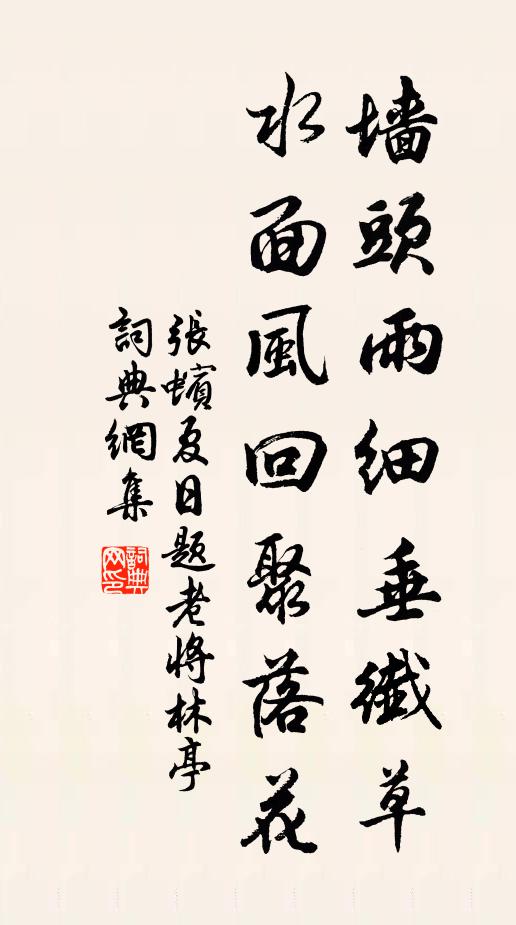 墙頭雨细垂纖草
水面風回聚落花
張蠙夏日题老將林亭
詞典網集
詞典网印